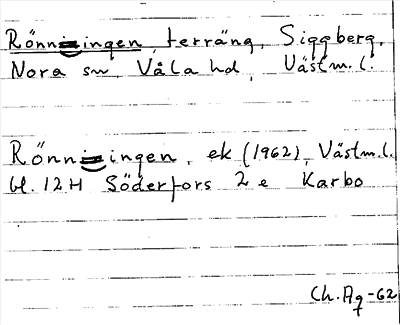 Rönningen, terräng, Siggberg,
Nora sn, Våla hd, Västm.l.
Rönningen, ek (1962), Västm.l.
bl. 12H Söderfors 2 e Karbo
Ch. Ag -62